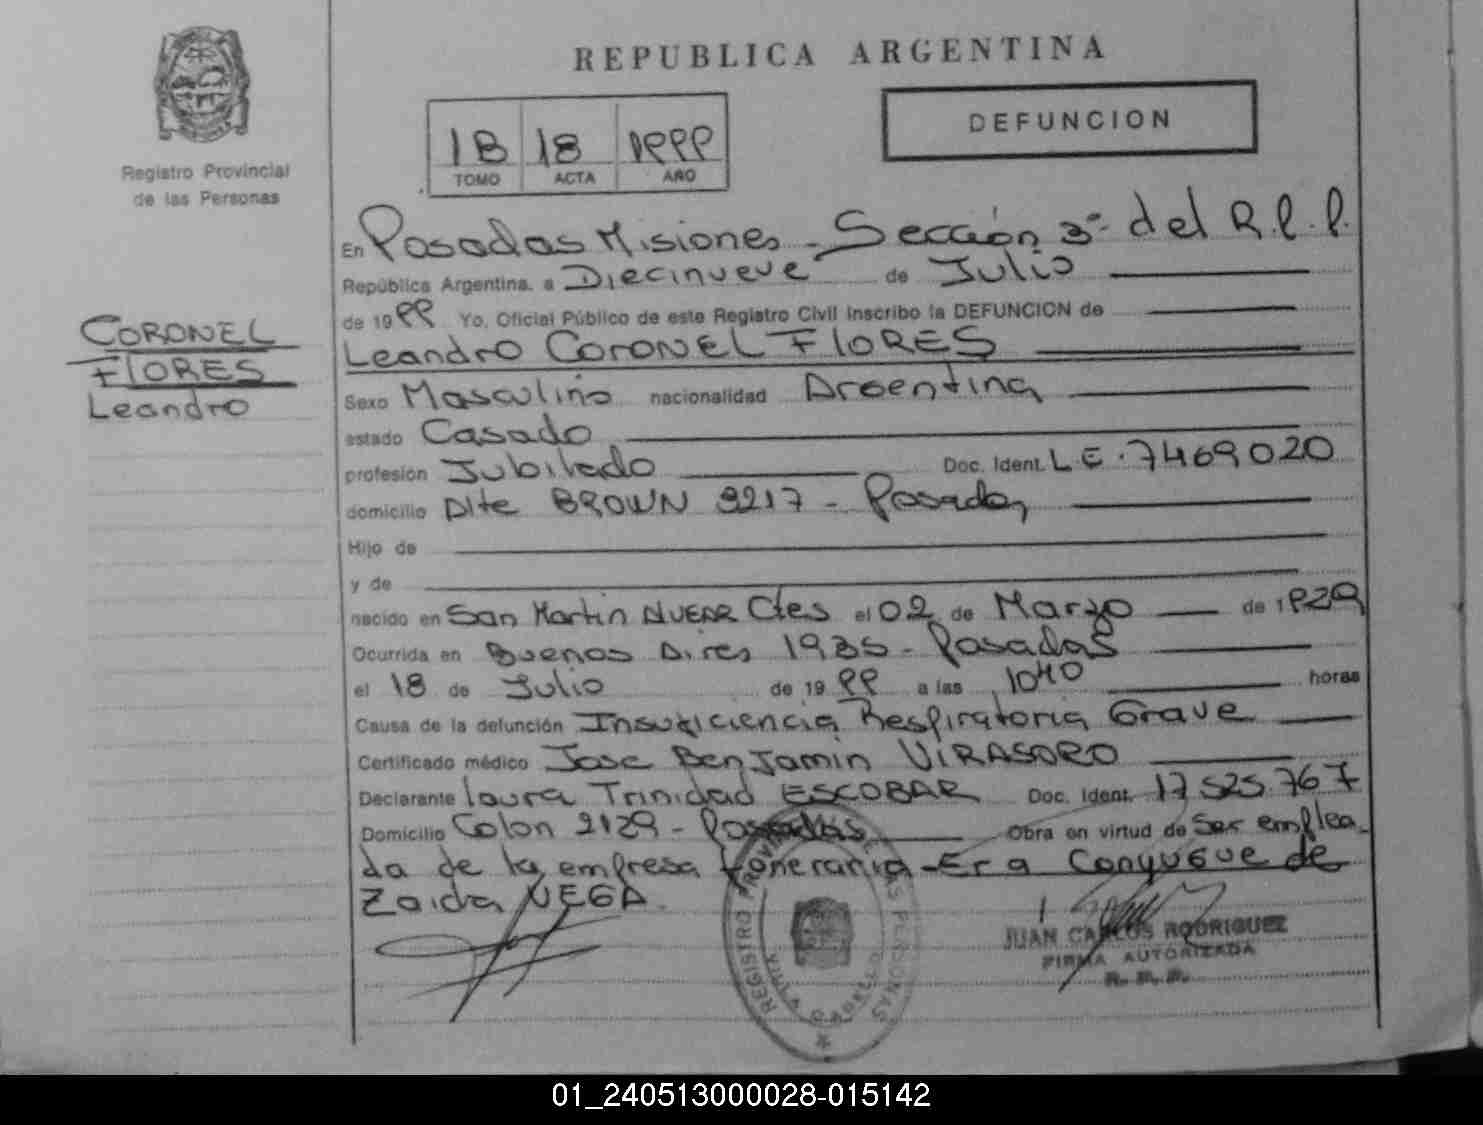 REPUBLICA ARGENTINA
DEFUNCION
1B 18 1999
TOMO ACTA AÑO
Registro Provincial
de las Personas
CORONEL
FLORES
Leandro
En Posadas Misiones - Sección 3ª del R.P.P.
República Argentina, a Diecinueve de Julio
de 1999 Yo, Oficial Público de este Registro Civil inscribo la DEFUNCION de
Leandro CORONEL FLORES
Sexo Masculino nacionalidad Argentina
estado Casado
profesión Jubilado Doc. Ident. L E. 7469020
domicilio Alte BROWN 3217 - Posadas
Hijo de
y de
nacido en San Martin Ctes el 02 de Marzo de 1929
Ocurrida en Buenos Aires 1935 - Posadas
el 18 de Julio de 1999 a las 1040 horas
Causa de la defunción Insuficiencia Respiratoria Grave
Certificado médico Jose Benjamin VIRASORO
Declarante Laura Trinidad ESCOBAR Doc. Ident. 17.525.767
Domicilio Colon 2129 - Posadas Obra en virtud de Ser emplea-
da de la empresa Funeraria - Era Conyugue de
Zaida VEGA.
REGISTRO PROVINCIAL DE LAS PERSONAS
JUAN CARLOS RODRIGUEZ
FIRMA AUTORIZADA
R. P. P.
01_240513000028-015142